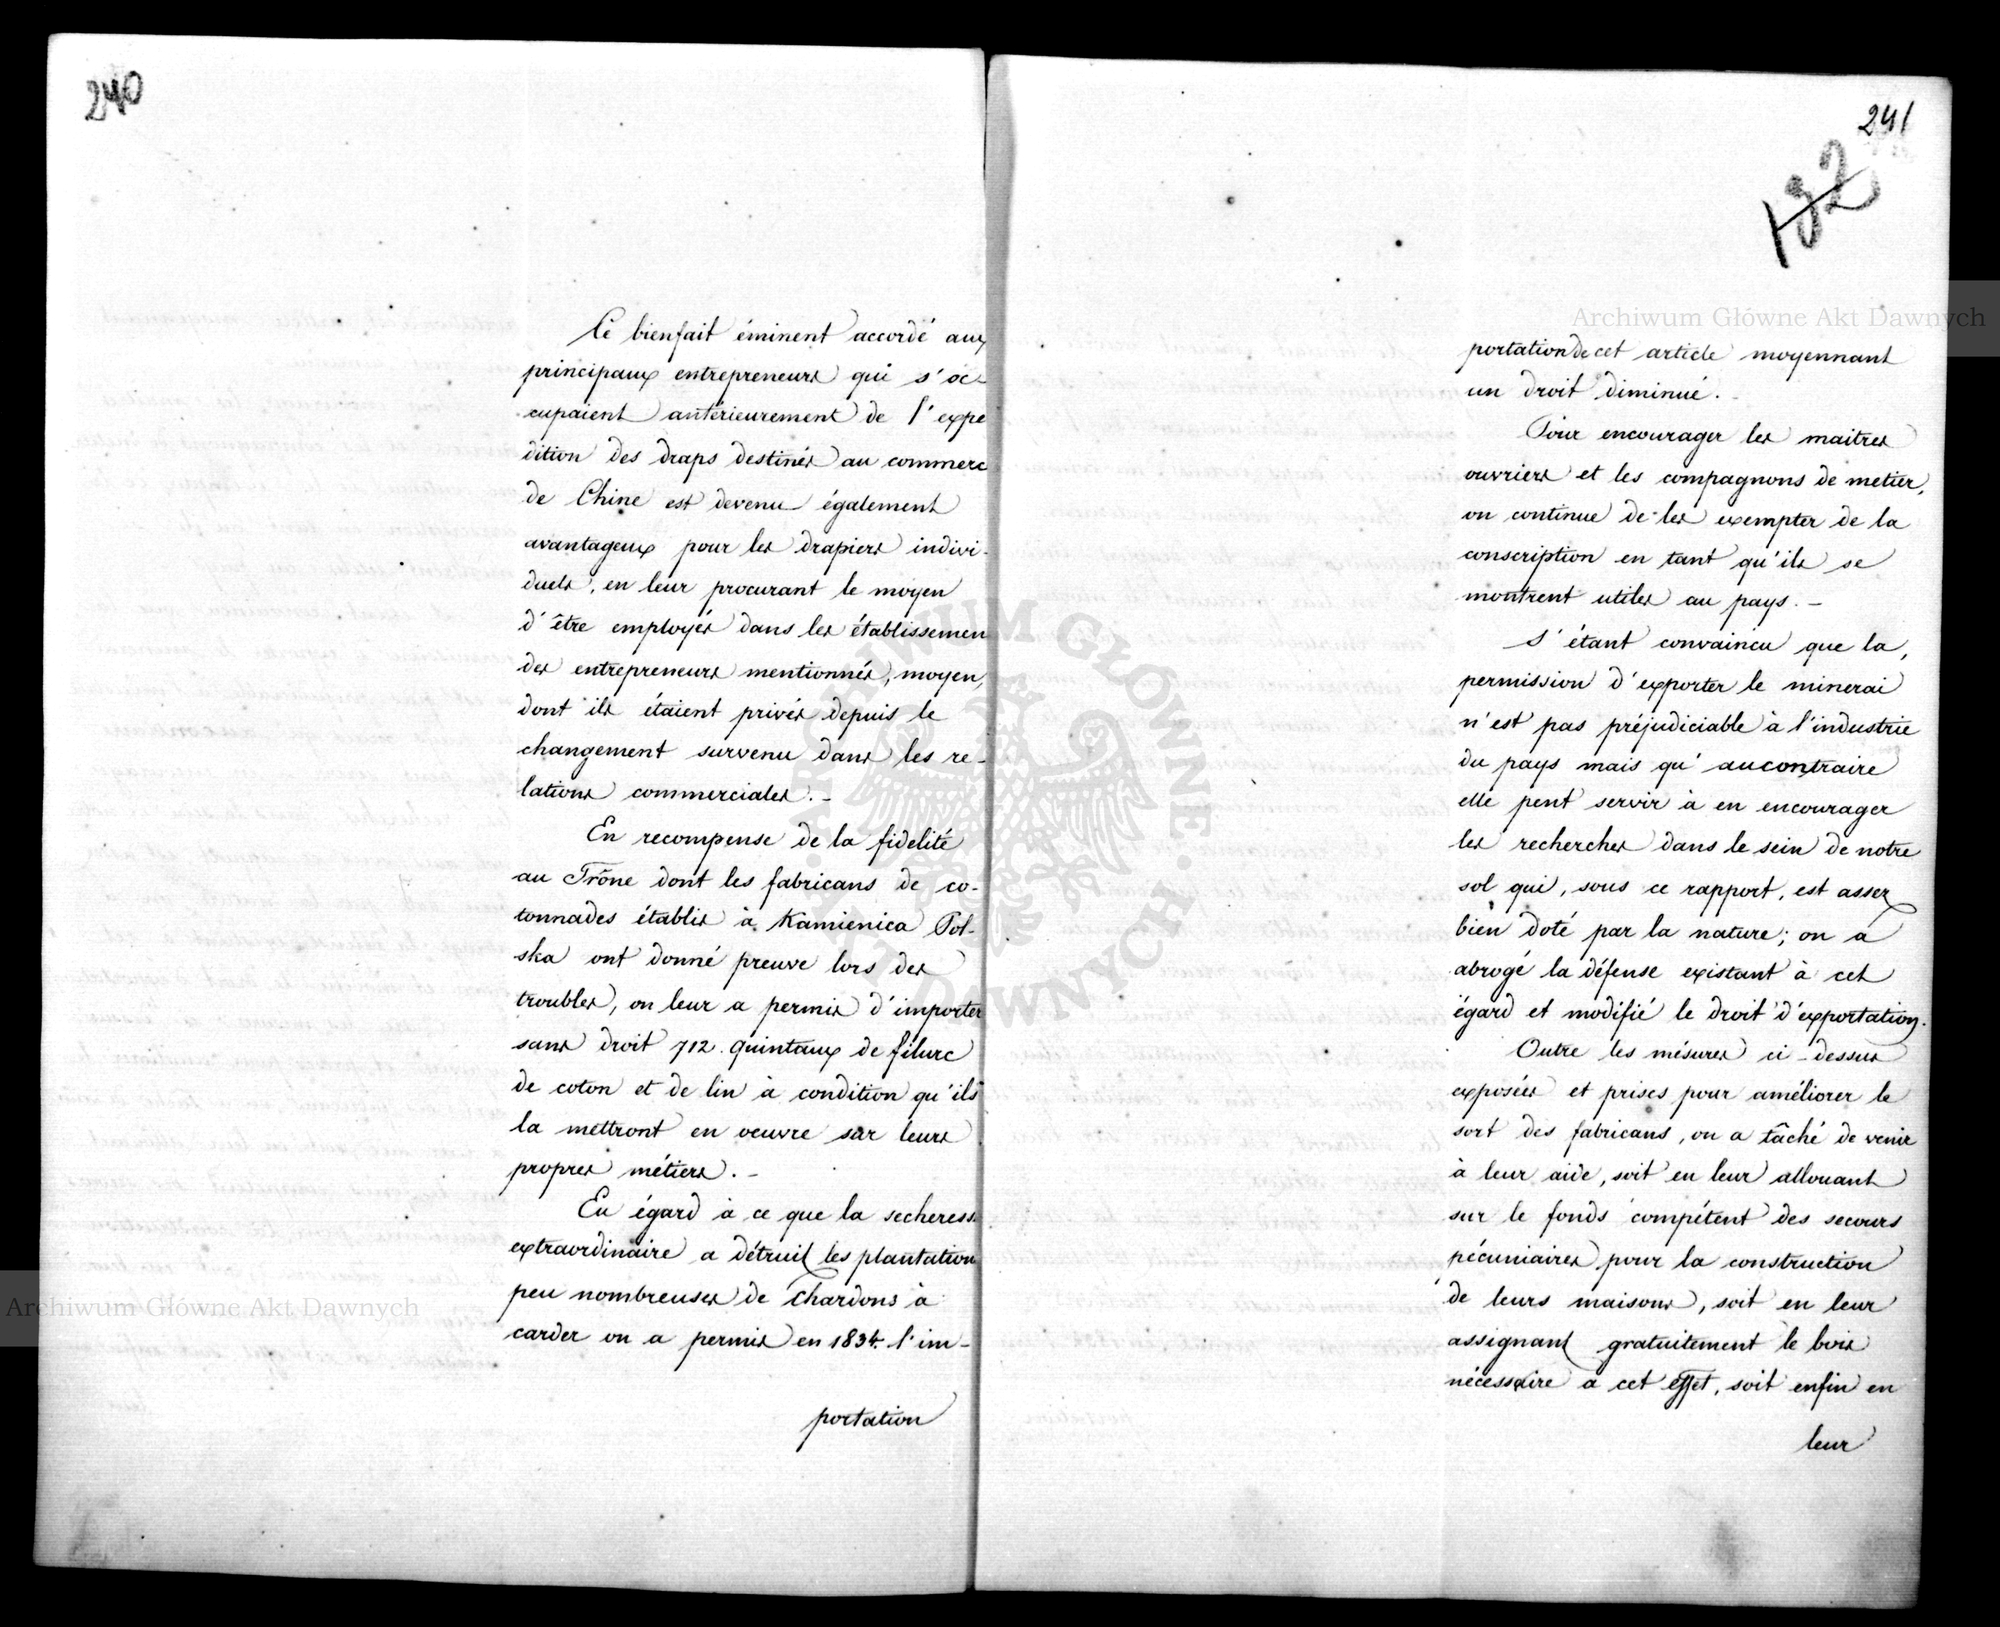 240
Ce bienfait éminent accordé aux
principaux entrepreneurs qui s'oc-
cupaient antérieurement de l'expé
dition des draps destinés au commerc
de Chine est devenu également
avantageux pour les drapiers indivi-
duels, en leur procurant le moyen
d'être employés dans les établissemen
des entrepreneurs mentionnés, moyen,
dont ils étaient privés depuis le
changement survenu dans les re-
lations commerciales. -
En recompense de la fidelité
au Trône dont les fabricans de co-
tonnades établis à Kamienica Pol-
ska ont donné preuve lors des
troubles, on leur a permis d'importer
sans droit 712 quintaux de filure
de coton et de lin à condition qu'ils
la mettront en oeuvre sur leurs
propres métiers. -
Eu égard à ce que la secheress
extraordinaire a détruit les plantation
peu nombreuses de Chardons à
carder on a permis en 1834. l'im-
portation
241
192
portation de cet article moyennant
un droit diminué. -
Pour encourager les maitres
ouvriers et les compagnons de metier,
on continue de les exempter de la
conscription en tant qu'ils se
montrent utiles au pays. -
S'étant convaincu que la,
permission d'exporter le minerai
n'est pas préjudiciable à l'industrie
du pays mais qu'aucontraire
elle peut servir à en encourager
les recherches dans le sein de notre
sol qui, sous ce rapport, est assez
bien doté par la nature; on a
abrogé la défense existant à cet
égard et modifié le droit d'exportation.
Outre les mésures ci-dessus
exposées et prises pour améliorer le
sort des fabricans, on a tâché de venir
à leur aide, soit en leur allouant
sur le fonds compétent des secours
pécuniaires pour la construction
de leurs maisons, soit en leur
assignant gratuitement le bois
nécessaire a cet effet, soit enfin en
leur
Archiwum Główne Akt Dawnych
Archiwum Główne Akt Dawnych
ARCHIWUM GŁÓWNE AKT DAWNYCH